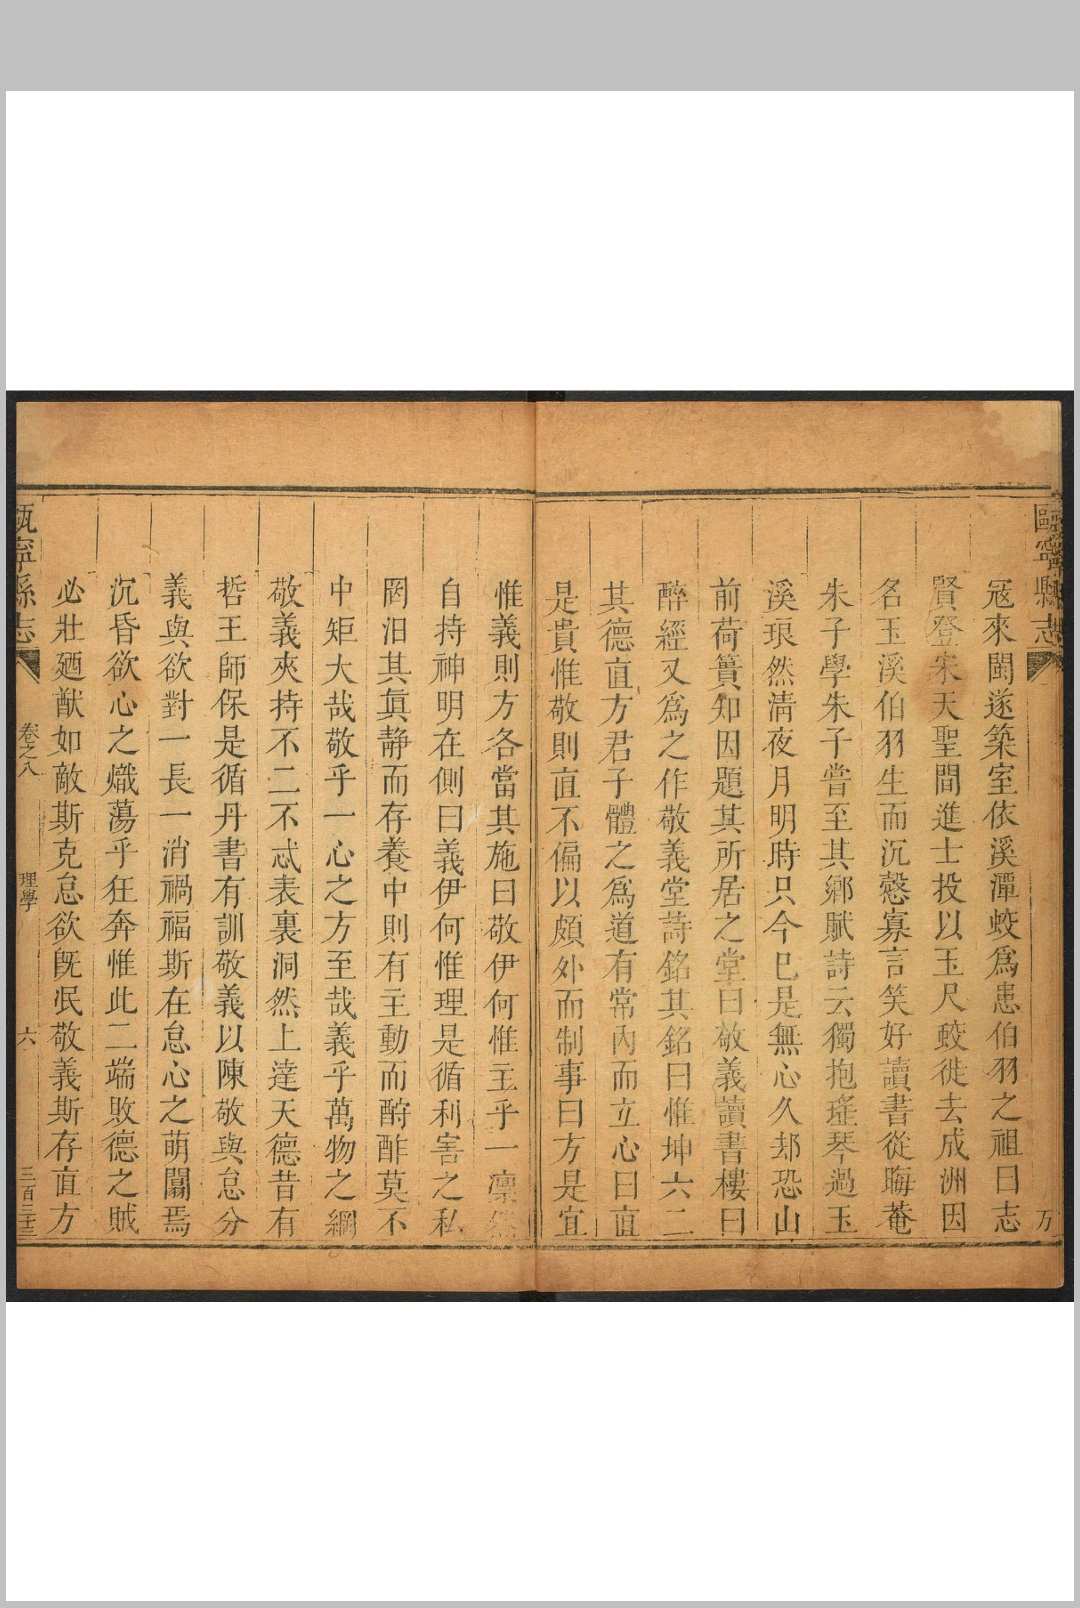 甌寧縣志
寇來閩遂築室依溪潭蛟爲患伯羽之祖曰志
賢登宋天聖間進士投以玉尺蛟徙去成洲因
名玉溪伯羽生而沉慤寡言笑好讀書從晦菴
朱子學朱子嘗至其鄉賦詩云獨抱瑤琴過玉
溪琅然清夜月明時只今已是無心久却恐山
前荷蕢知因題其所居之堂曰敬義讀書樓曰
醉經又爲之作敬義堂詩銘其銘曰惟坤六二
其德直方君子體之爲道有常內而立心曰直
是貴惟敬則直不偏以頗外而制事曰方是宜
惟義則方各當其施曰敬伊何惟主乎一凛然
自持神明在側曰義伊何惟理是循利害之私
罔汨其眞靜而存養中則有主動而酧酢莫不
中矩大哉敬乎一心之方至哉義乎萬物之綱
敬義夾持不二不忒表裏洞然上達天德昔有
哲王師保是循丹書有訓敬義以陳敬與怠分
義與欲對一長一消禍福斯在怠心之萌闒焉
沉昏欲心之熾蕩乎狂奔惟此二端敗德之賊
必壯廼猷如敵斯克怠欲旣泯敬義斯存直方
甌寧縣志
卷之八
理學
六